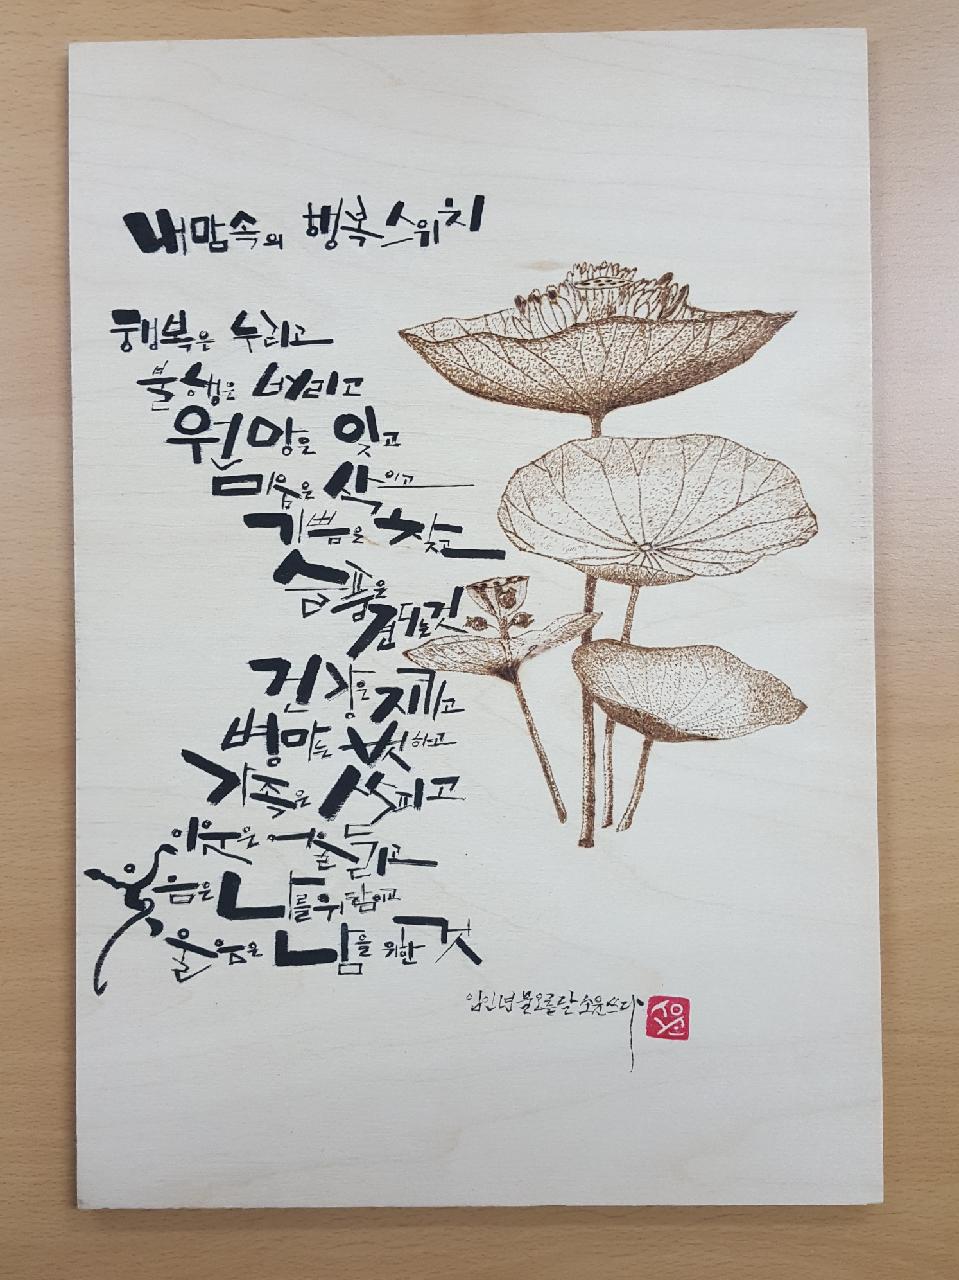 내맘속의 행복스위치
행복은 누리고
불행은 버리고
원망은 잊고
미움은 삭이고
기쁨은 찾고
슬픔은
견디는것
건강은 지키고
병마는 벗하고
가족은 보살피고
이웃은 어울리고
웃음은 나를위함이고
울음은 남을 위한 것
임인년 물오름달 소운쓰다